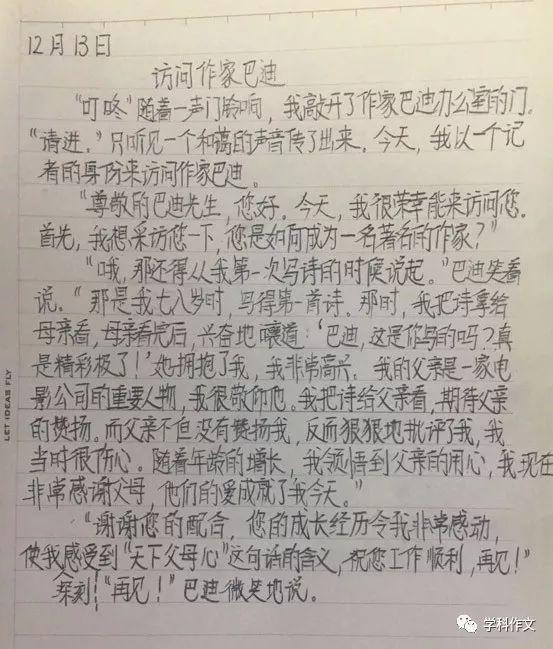 12月13日
访问作家巴迪
“叮咚”随着一声门铃响，我敲开了作家巴迪办公室的门。
“请进。”只听见一个和蔼的声音传了出来。今天，我以一个记
者的身份来访问作家巴迪。
“尊敬的巴迪先生，您好。今天，我很荣幸能来访问您.
首先，我想采访您一下，您是如何成为一名著名的作家？”
“哦，那还得从我第一次写诗的时候说起。”巴迪笑着
说。“那是我七八岁时，写得第一首诗。那时，我把诗拿给
母亲看，母亲看完后，兴奋地嚷道：‘巴迪，这是你写的吗？真
是精彩极了！’她拥抱了我，我非常高兴。我的父亲是一家电
影公司的重要人物，我很敬仰他。我把诗给父亲看，期待父亲
的赞扬。而父亲不但没有赞扬我，反而狠狠地批评了我，我
当时很伤心。随着年龄的增长，我领悟到父亲的用心，我现在
非常感谢父母，他们的爱成就了我今天。”
“谢谢您的配合，您的成长经历令我非常感动，
使我感受到“天下父母心”这句话的含义，祝您工作顺利，再见！”
深刻！“再见！”巴迪微笑地说。
LET IDEAS FLY
学科作文